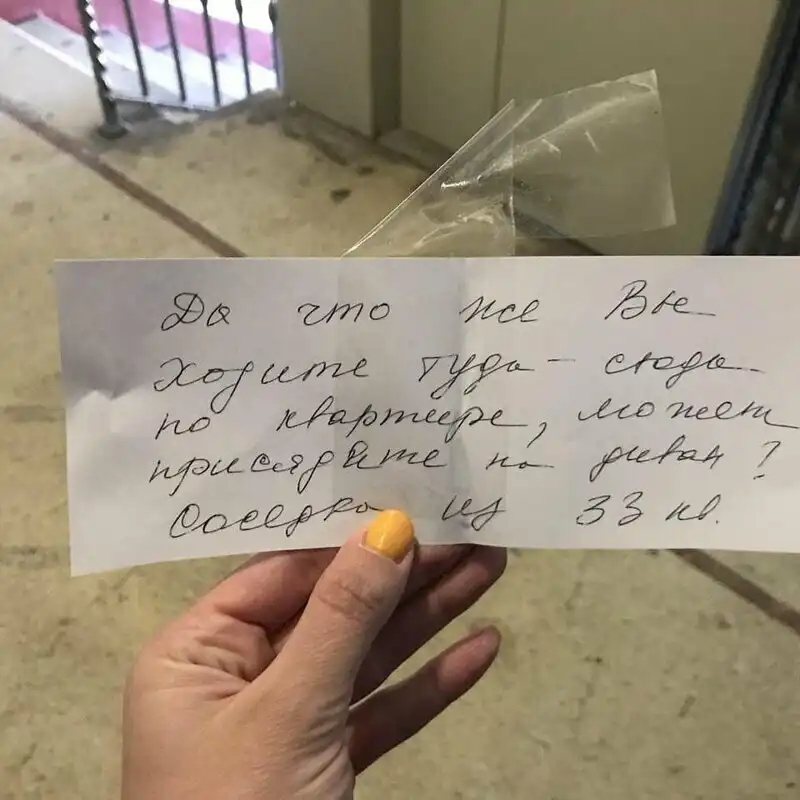 Да что же Вы
ходите туда-сюда
по квартире, может
присядете на диван?
Соседка из 33 кв.